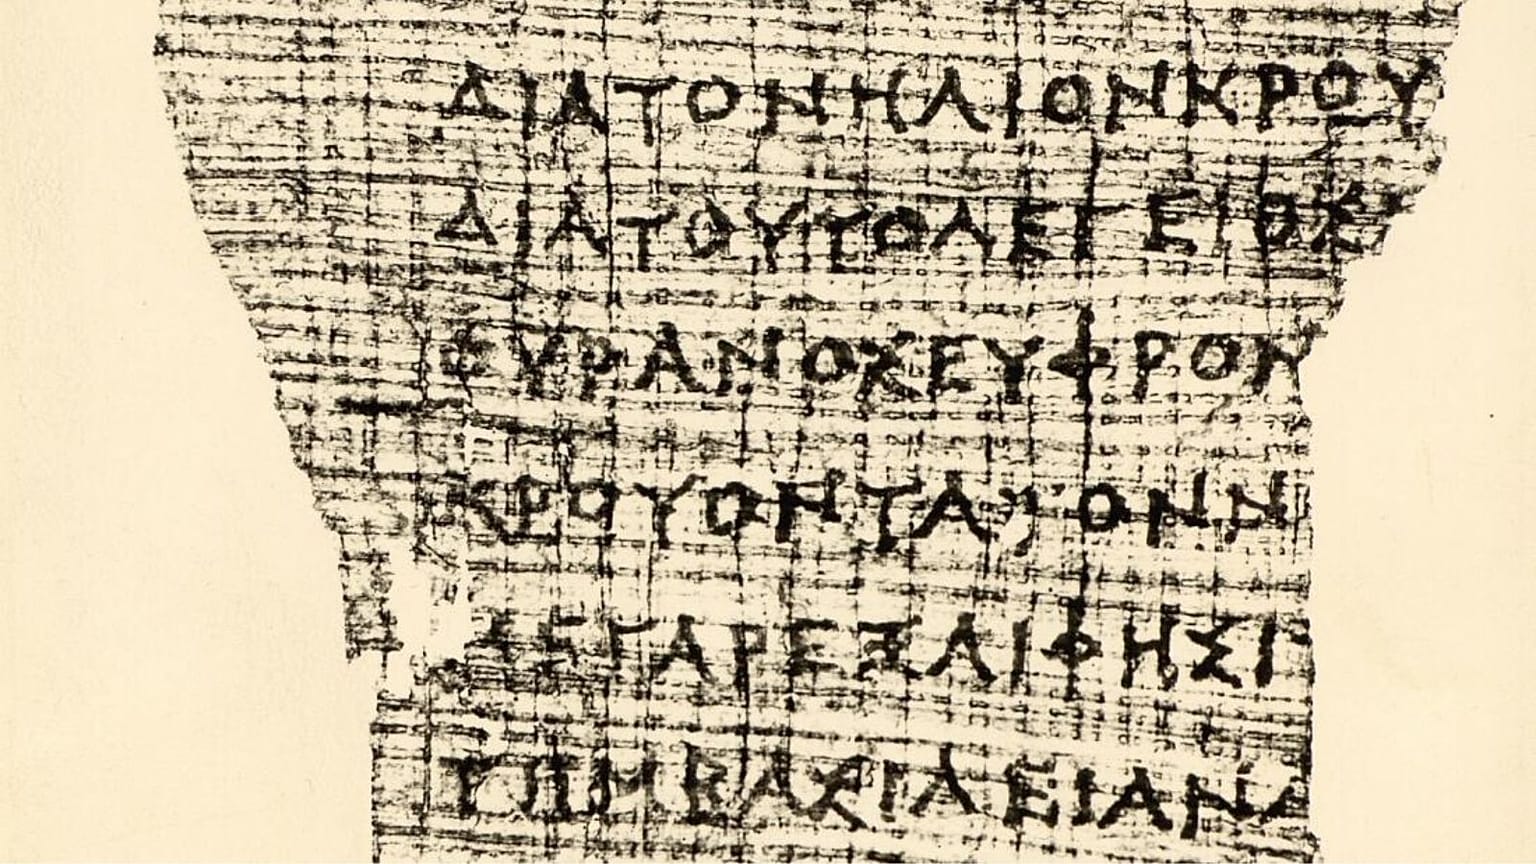 ΔΙΑΤΟΝΗΛΙΟΝΚΡΟΥ
ΔΙΑΤΟΥΤΟΛΕΓΕΙΟΣ
ΟΥΡΑΝΟΣΕΥΦΡΟΝ
ΚΡΟΥΟΝΤΑ ΤΟΝΝ
ΔΕΓΑΡΕΞΑΙΦΗΣΙ
ΤΗΜΒΑΣΙΛΕΙΑΝ